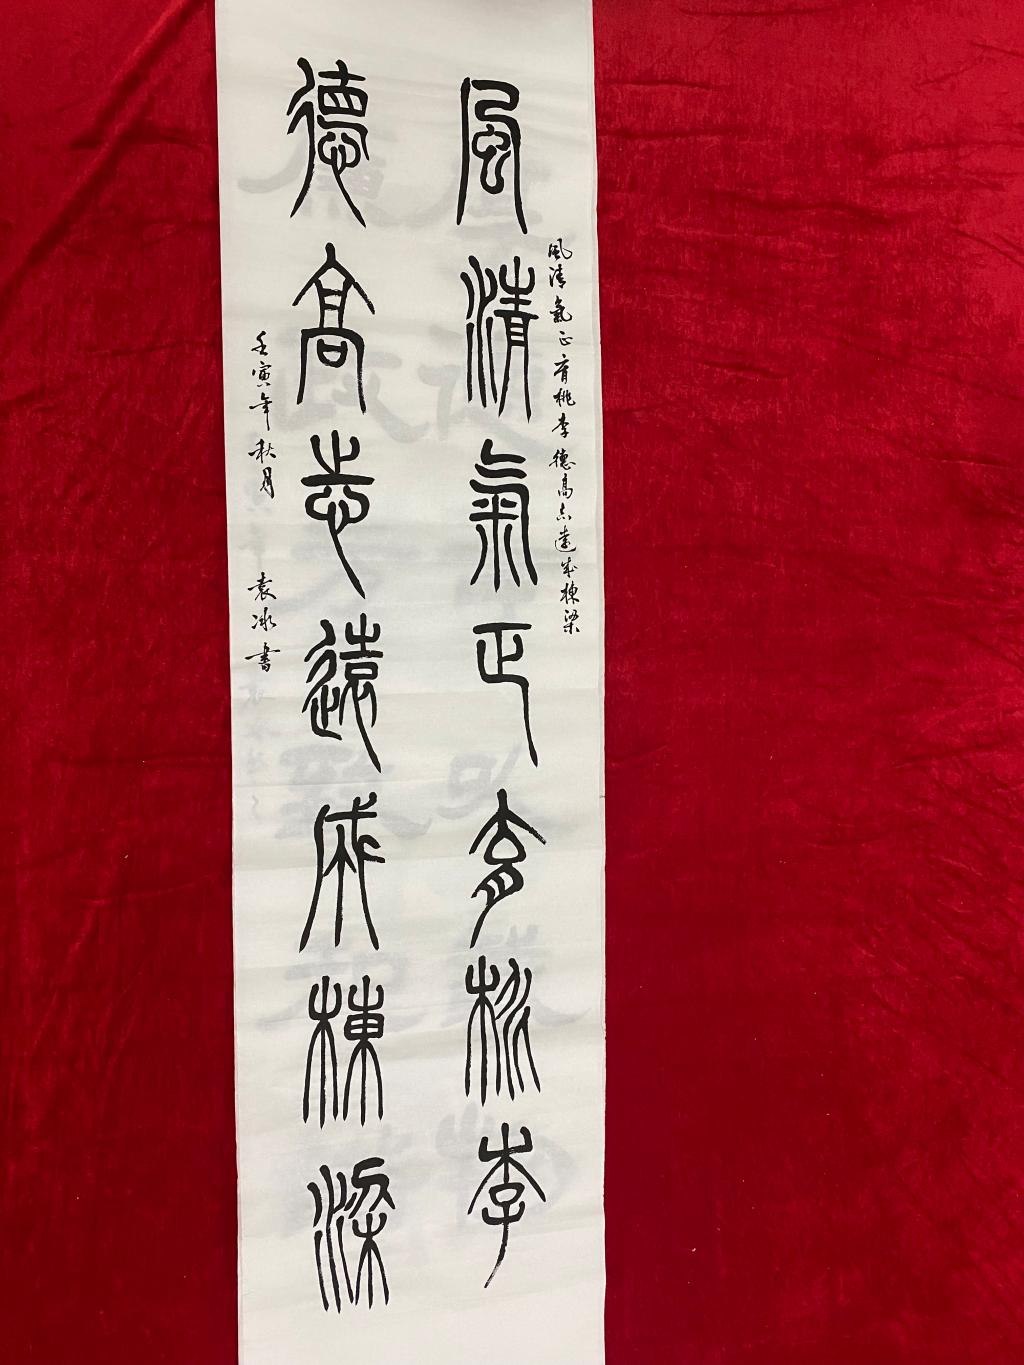 風清氣正育桃李
風清氣正育桃李德高志遠成棟梁
德高志遠成棟梁
壬寅年秋月 袁冰書